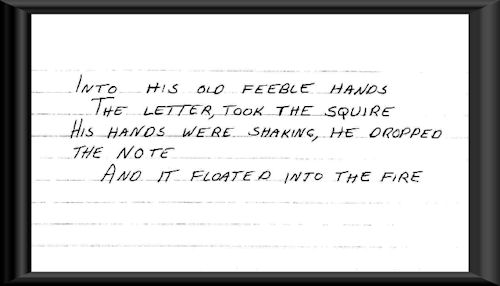 INTO HIS OLD FEEBLE HANDS
THE LETTER, TOOK THE SQUIRE
HIS HANDS WERE SHAKING, HE DROPPED
THE NOTE
AND IT FLOATED INTO THE FIRE